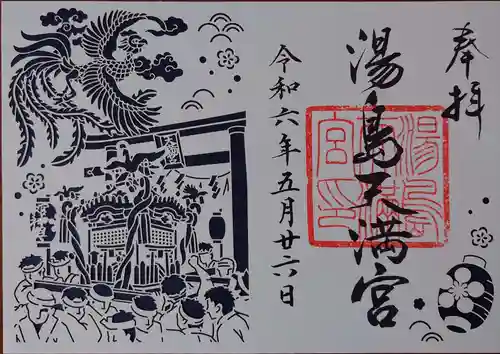 奉拝
湯島天満宮
令和六年五月廿六日